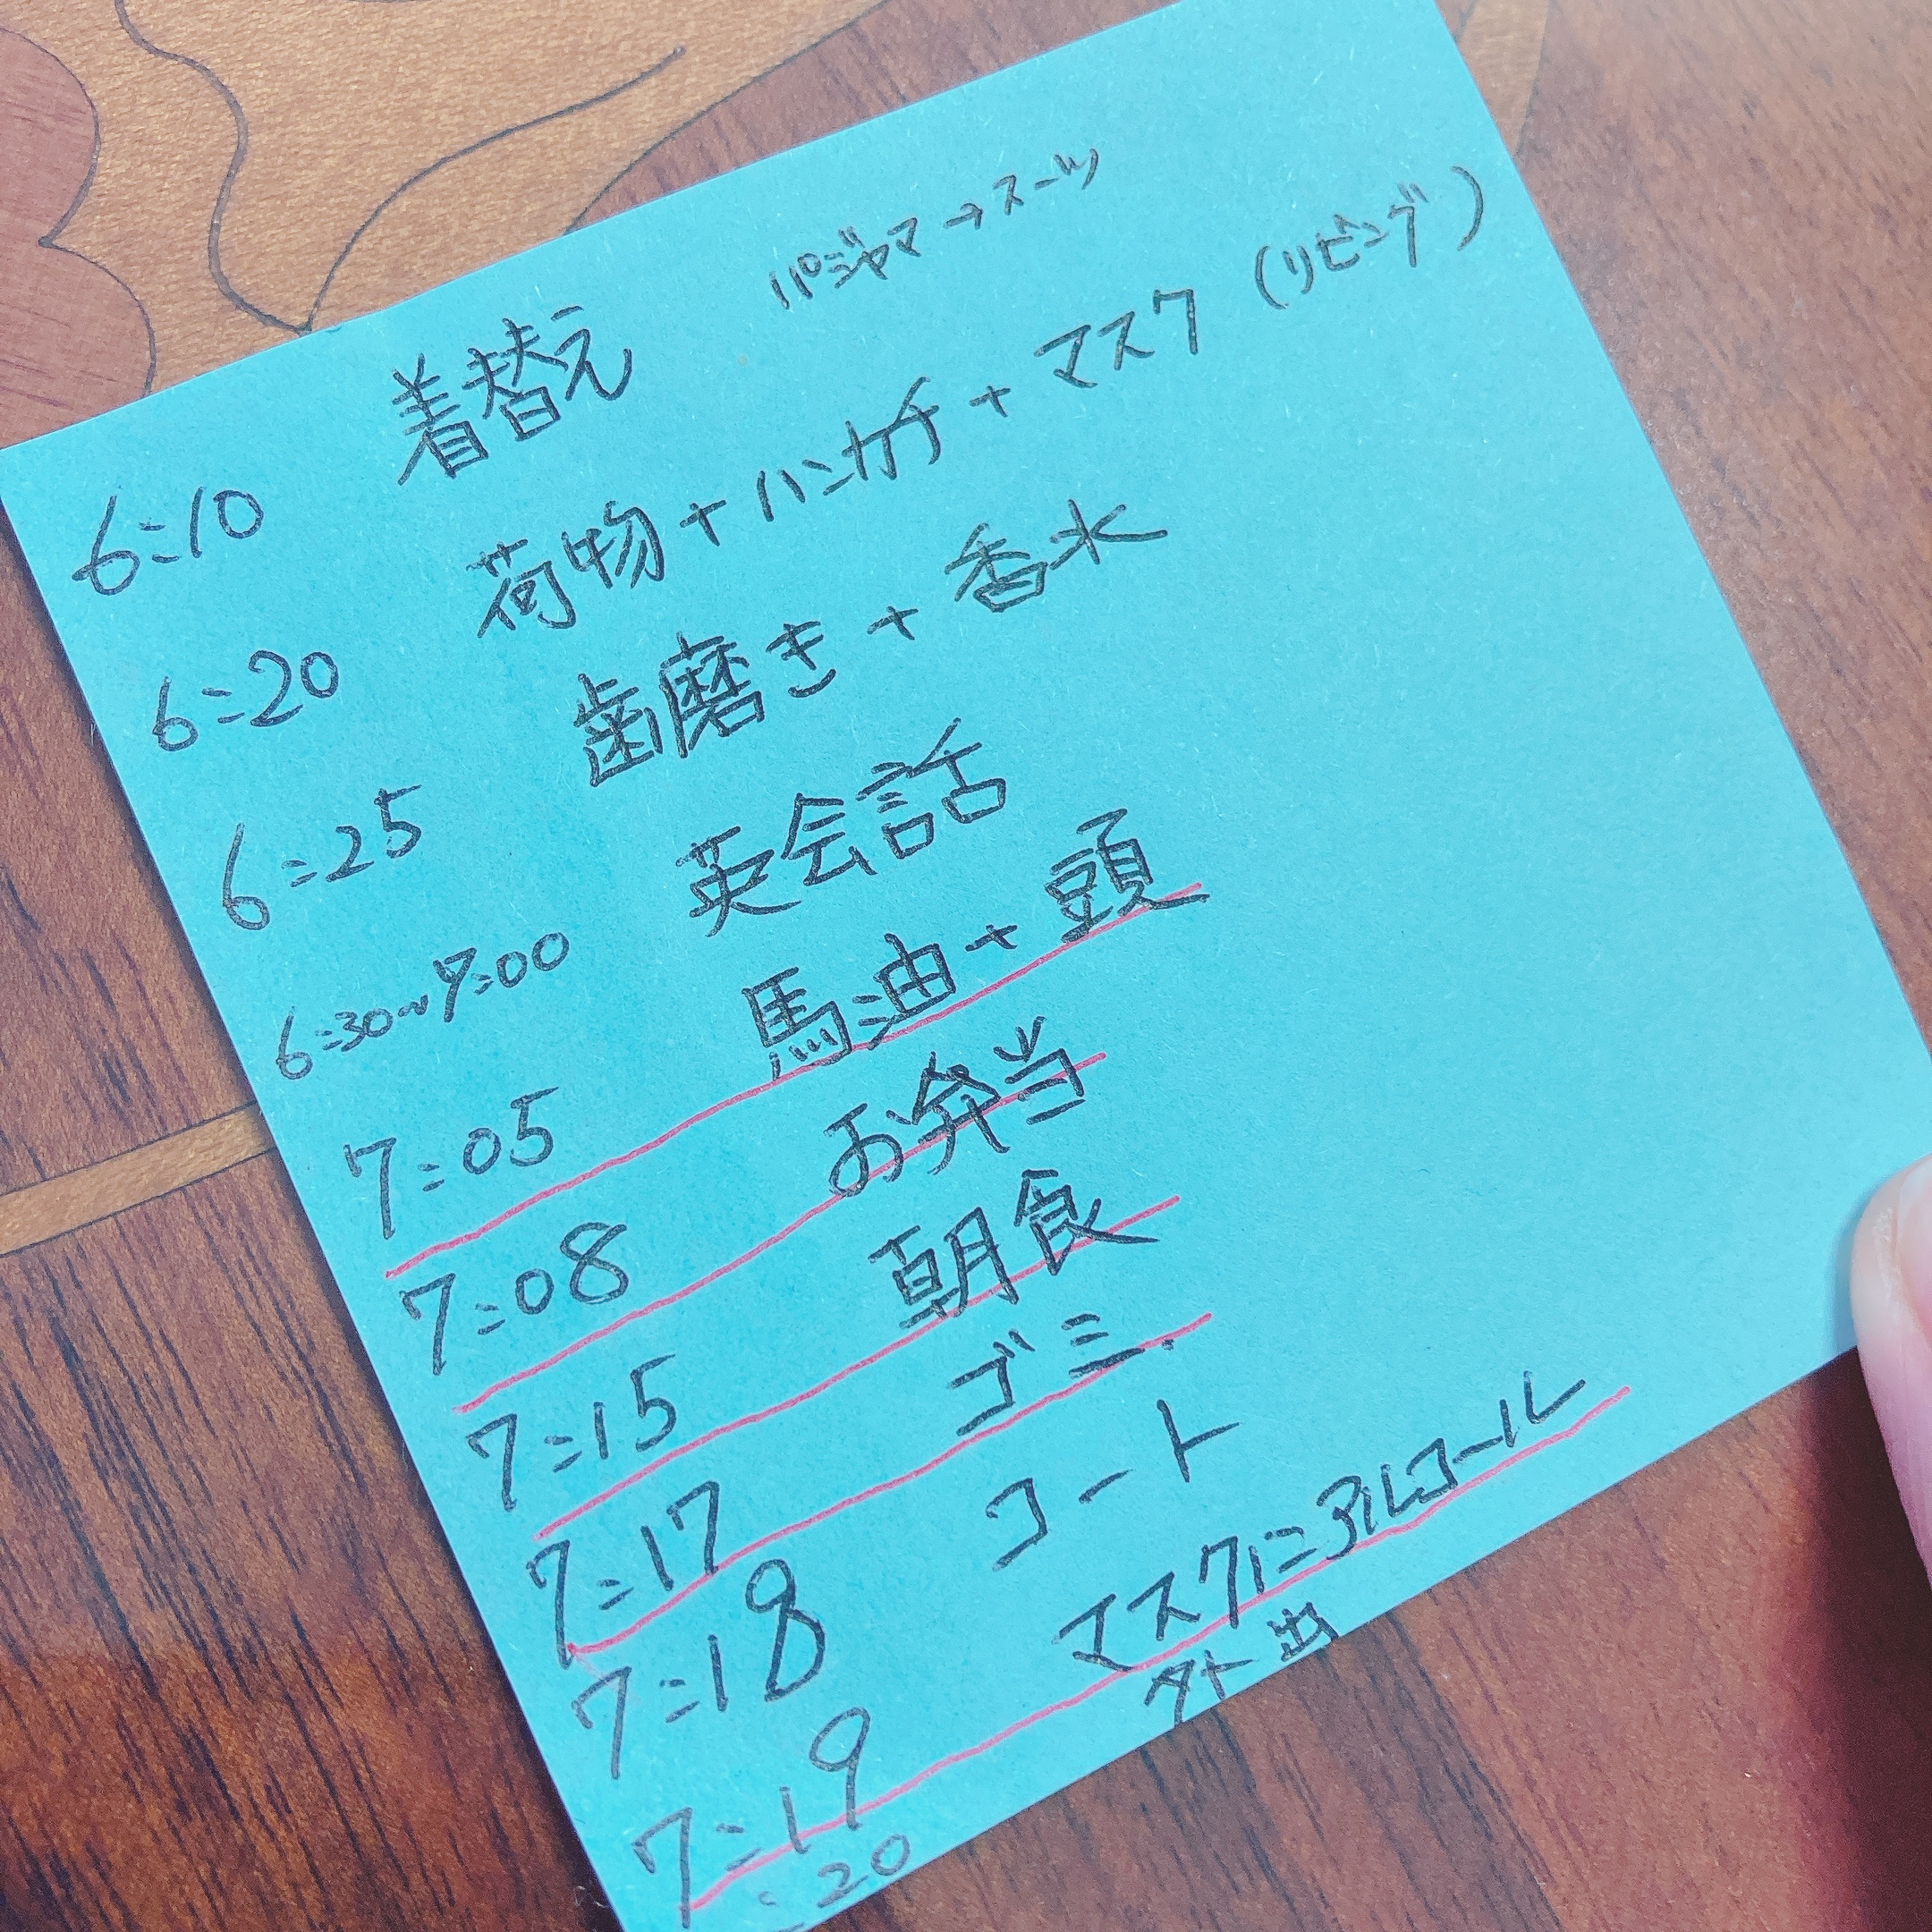 6:10 着替え パジャマ→スーツ
6:20 荷物+ハンカチ+マスク (リビング)
6:25 歯磨き+香水
6:30〜7:00 英会話
7:05 馬油+頭
7:08 お弁当
7:15 朝食
7:17 ゴミ.
7:18 コート
7:19 マスクにアルコール
:20 外出